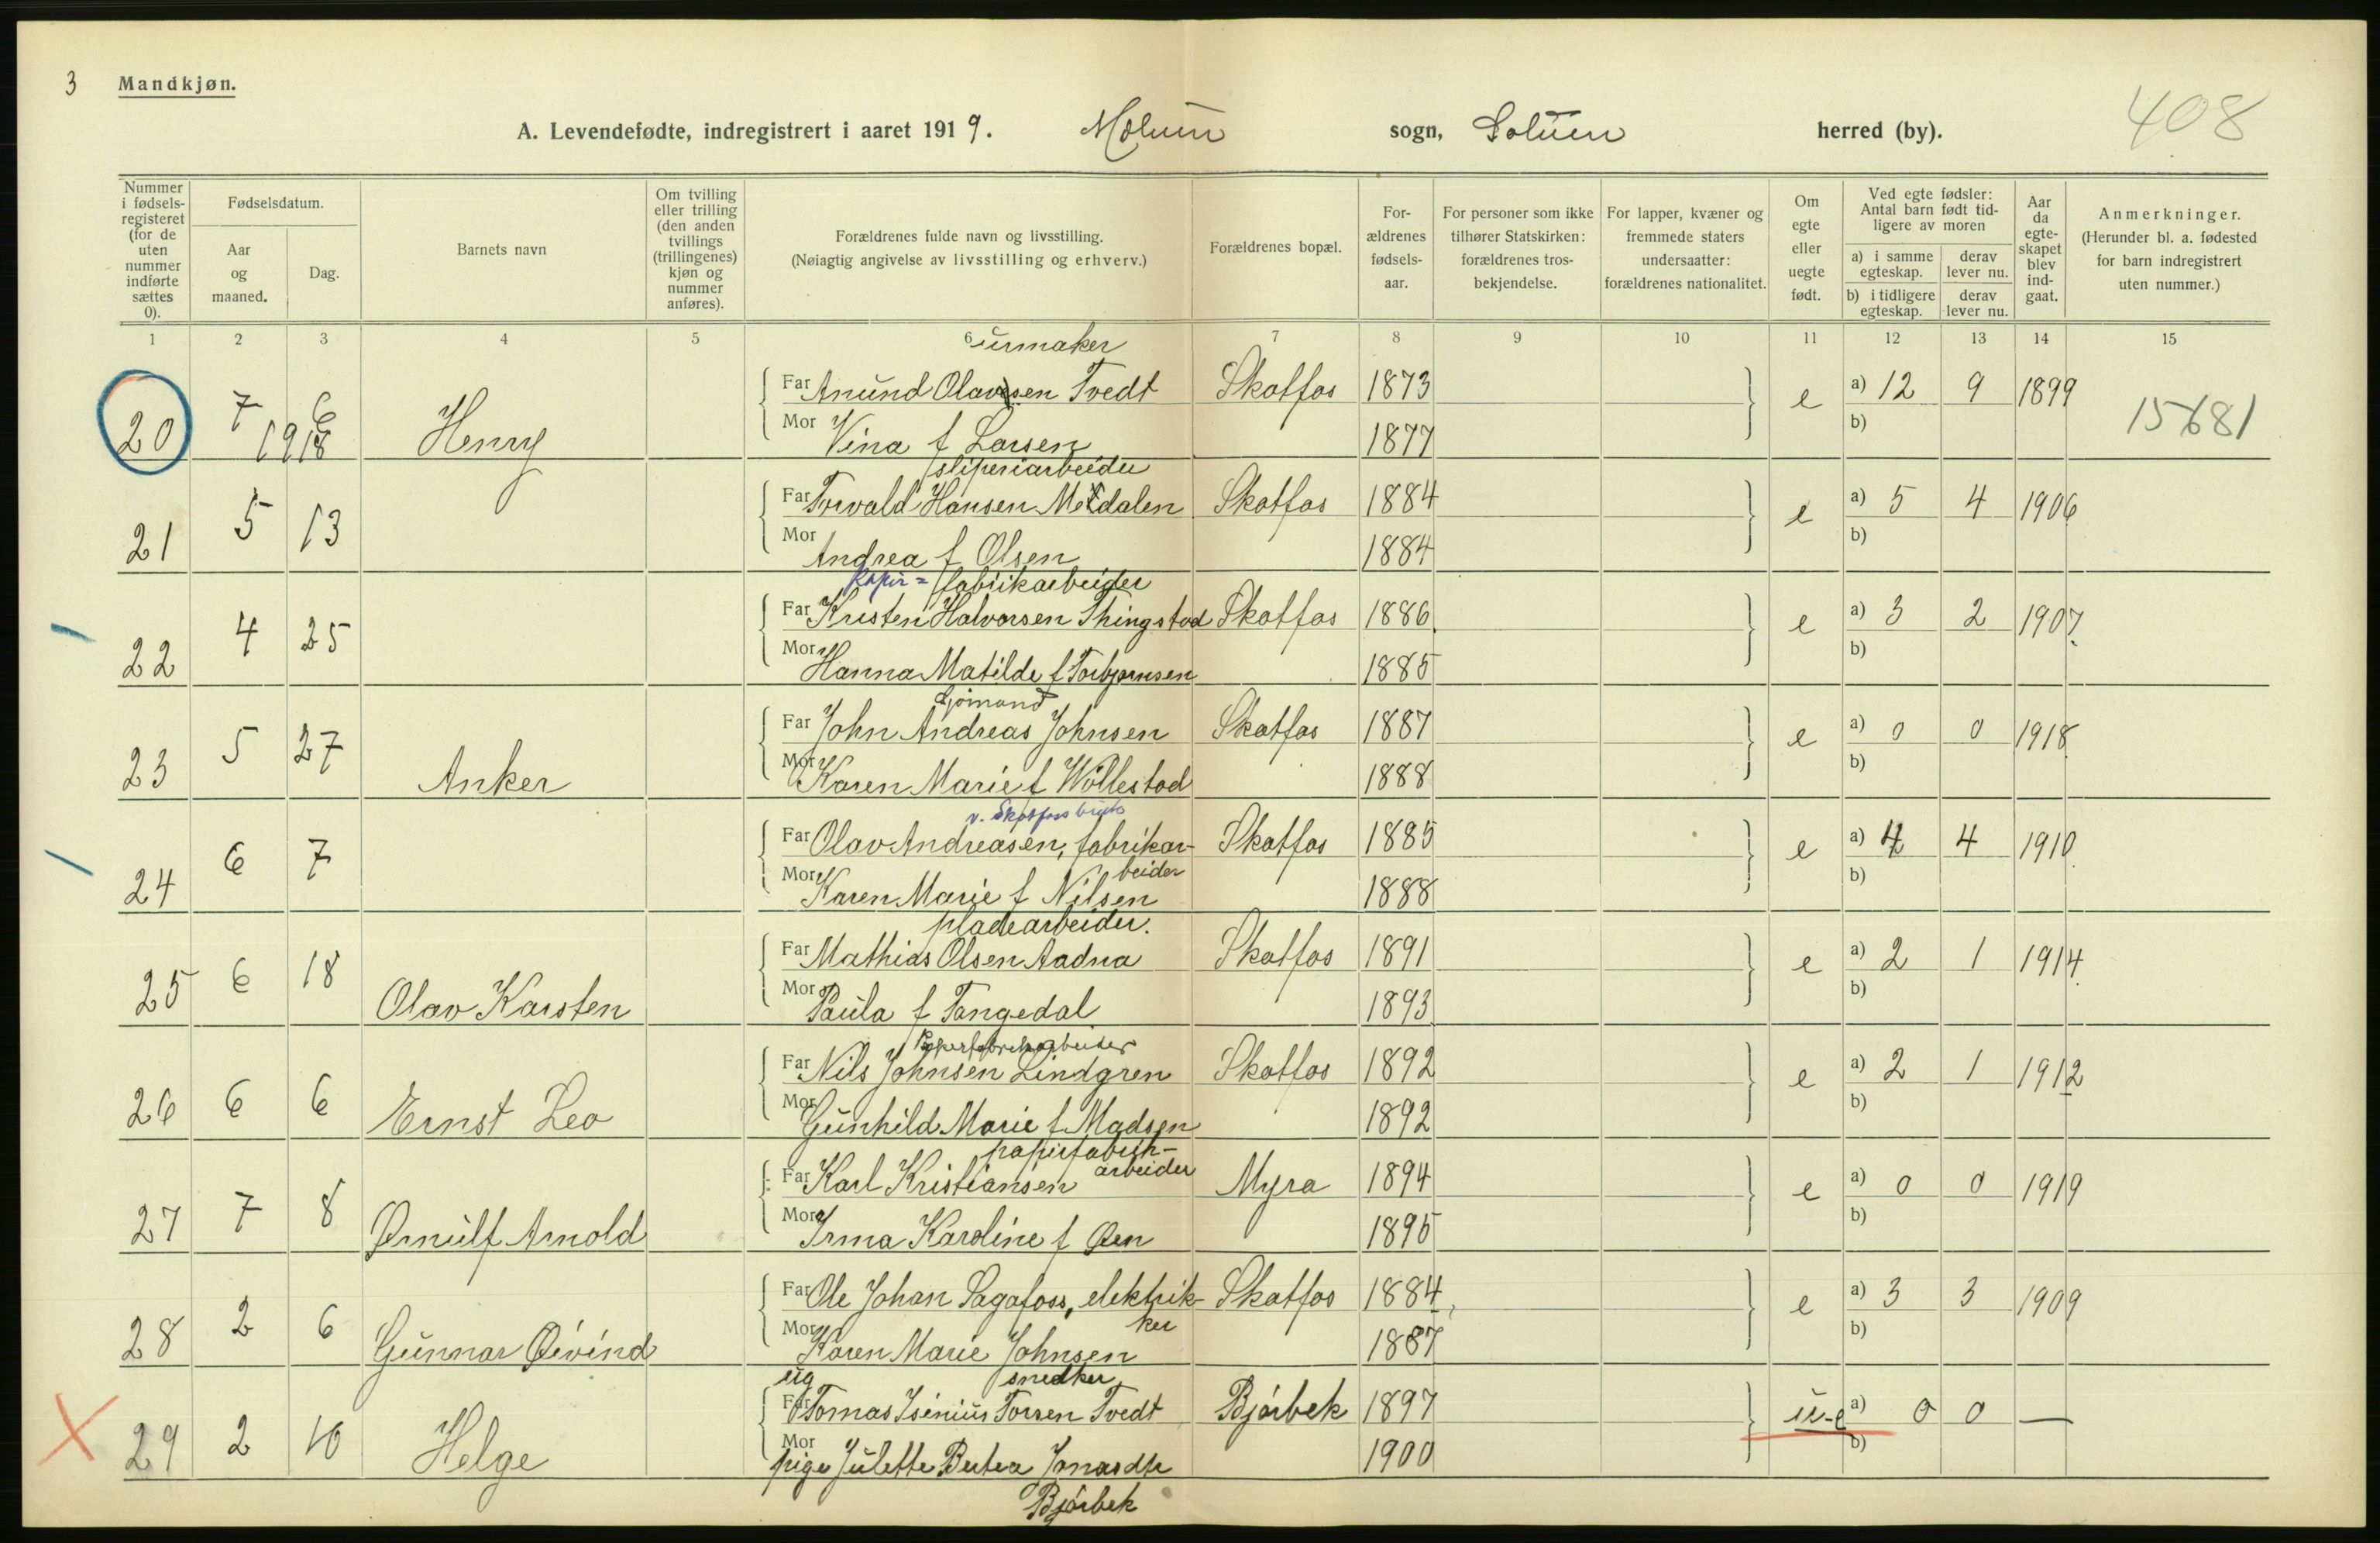 3 Mandkjøn.
408
A. Levendefødte, indregistrert i aaret 1919. Melum sogn, Solum herred (by).
Nummer i fødselsregisteret (for de uten nummer indførte sættes 0).
Fødselsdatum.
Aar og maaned.
Dag.
Barnets navn
Om tvilling eller trilling (den anden tvillings (trillingenes) kjøn og nummer anføres).
Forældrenes fulde navn og livsstilling.
(Nøiagtig angivelse av livsstilling og erhverv.)
Forældrenes bopæl.
For-ældrenes fødsels-aar.
For personer som ikke tilhører Statskirken: forældrenes tros-bekjendelse.
For lapper, kvæner og fremmede staters undersaatter: forældrenes nationalitet.
Om egte eller uegte født.
Ved egte fødsler: Antal barn født tid-ligere av moren
a) i samme egteskap. derav lever nu.
b) i tidligere egteskap. derav lever nu.
Aar da egte-skapet blev ind-gaat.
Anmerkninger.
(Herunder bl. a. fødested for barn indregistrert uten nummer.)
1 2 3 4 5 6 7 8 9 10 11 12 13 14 15
urmaker
20 7 6 1918 Henry Far Anund Olavsen Tvedt Skotfos 1873 e a) 12 9 1899 15681
Mor Vina f Larsen 1877 b)
sliperiarbeider
21 5 13 Far Torvald Hansen Meldalen Skotfos 1884 e a) 5 4 1906
Mor Andrea f Olsen 1884 b)
Papir= fabrikarbeider
22 4 25 Far Kristen Halvorsen Thingstad Skotfos 1886 e a) 3 2 1907
Mor Hanna Matilde f Torbjørnsen 1885 b)
Sjømand
23 5 27 Anker Far John Andreas Johnsen Skotfos 1887 e a) 0 0 1918
Mor Karen Marie f Wøllestad 1888 b)
v. Skotfos bruk
24 6 7 Far Olav Andreasen, fabrikar- Skotfos 1885 e a) 4 4 1910
beider
Mor Karen Marie f Nilsen 1888 b)
pladearbeider.
25 6 18 Olav Karsten Far Mathias Olsen Aadna Skotfos 1891 e a) 2 1 1914
Mor Paula f Tangedal 1893 b)
Papirfabrikarbeider
26 6 6 Ernst Leo Far Nils Johnsen Lindgren Skotfos 1892 e a) 2 1 1912
Mor Gunhild Marie f Madsen 1892 b)
papirfabrik-
arbeider
27 7 8 Ørnulf Arnold Far Karl Kristiansen Myra 1894 e a) 0 0 1919
Mor Irma Karoline f Øen 1895 b)
28 2 6 Gunnar Øivind Far Ole Johan Sagafoss, elektrik- Skotfos 1884 e a) 3 3 1909
ker
Mor Karen Marie Johnsen 1887 b)
ug snedker
29 2 10 Helge Far Tomas Isenius Torsen Tvedt Bjørbek 1897 u-e a) 0 0 —
Mor pige Julette Bertea Jonasdtr 1900 b)
Bjørbek